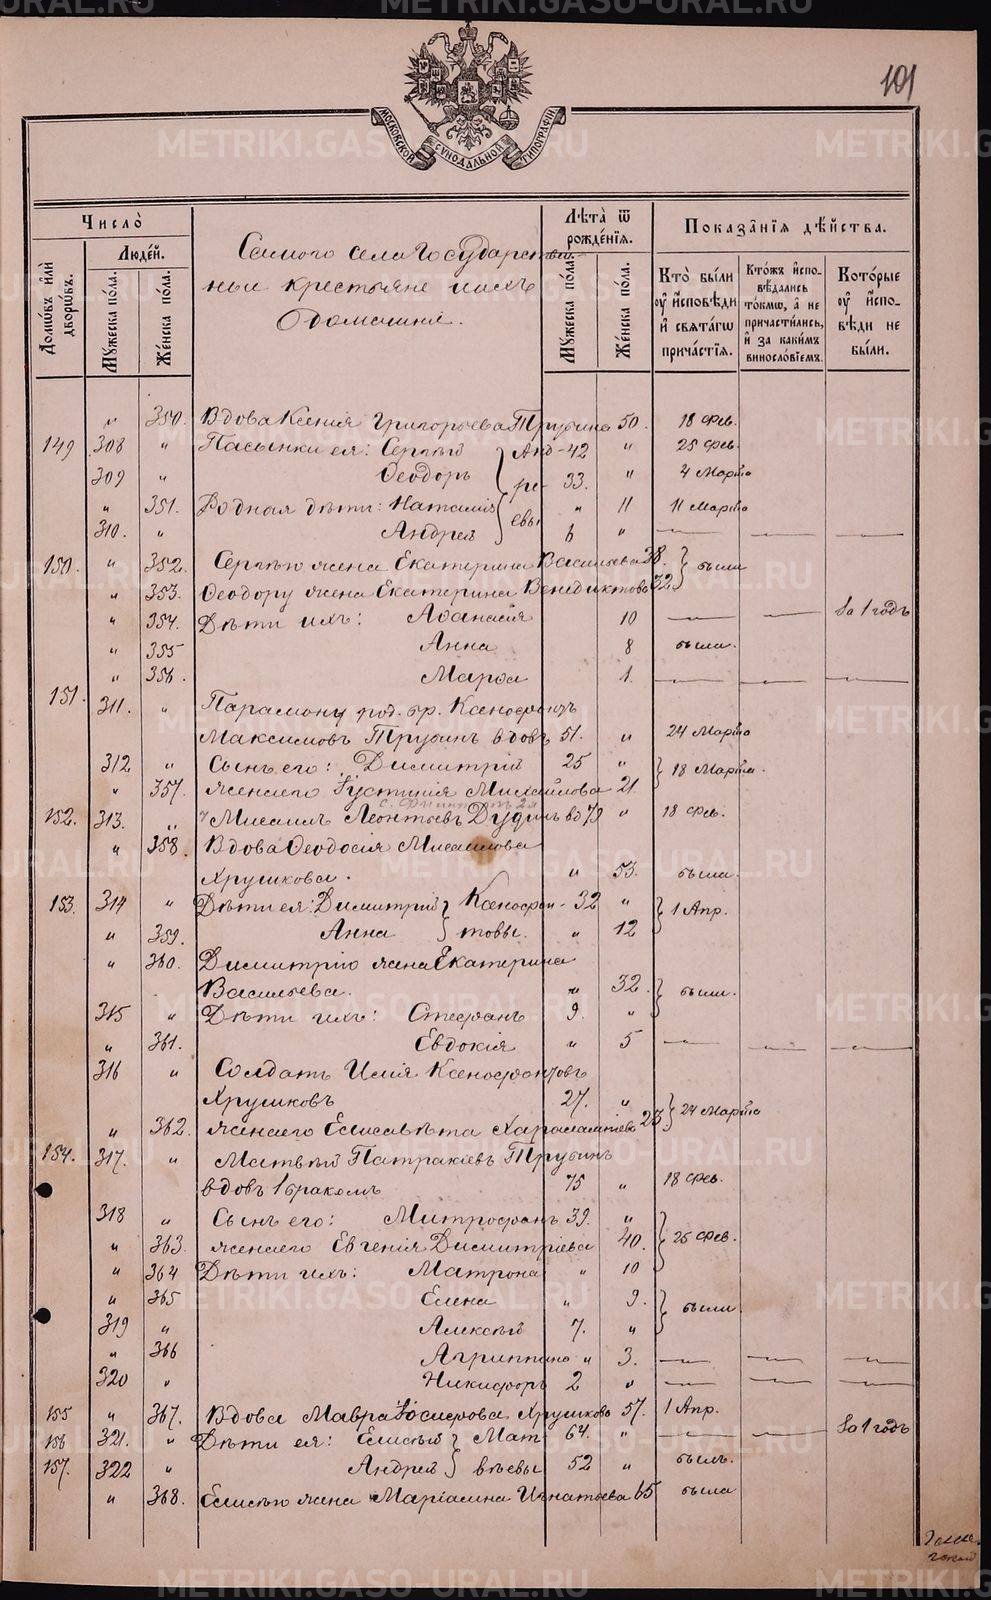 METRIKI.GASO-URAL.RU
101
МОСКОВСКОЙ СѴНОДАЛЬНОЙ ТИПОГРАФІИ.
Число̀
Домѡвъ илѝ дворѡвъ.
Люде́й.
Мꙋжеска по́ла.
Же́нска по́ла.
Самого села Государствен-
ные крестьяне и ихъ
домашніе.
Лѣта̀ ѿ рожде́нїѧ.
Мꙋжеска по́ла.
Же́нска по́ла.
Показа́нїѧ дѣ́йства.
Кто̀ бы́ли ᲂу҆ и҆сповѣди и҆ свѧта́гѡ прича́стїѧ.
Кто́жъ и҆спо- вѣдались то́кмѡ, а҆ не причасти́лись, и҆ за каки́мъ виносло́вїемъ.
Кото́рые ᲂу҆ и҆спо- вѣди не бы́ли.
" 350. Вдова Ксенія Григорьева Трубина 50. 18 фев.
149 308 " Пасынки ея: Сергѣй } Анд- 42 " 25 фев.
309 " Ѳеодоръ } ре- 33. " 4 Марта
" 351. Родныя дѣти: Наталія } евы " 11 11 Марта
310. " Андрей 6 " — — —
150. " 352. Сергѣю жена Екатерина Васильева 38. } были
" 353. Ѳеодору жена Екатерина Венедиктова 32
" 354. Дѣти ихъ: Аѳанасія 10 — — За 1 годъ
" 355 Анна 8 была.
" 356. Марѳа 1. — — —
151. 311. " Парамону род. бр. Ксенофонтъ
Максимовъ Трубинъ вдовъ 51. " 24 Марта
312 " Сынъ его: Димитрій 25 " } 18 Марта.
" 357. Жена его Іустинія Михайлова 21.
152. 313. " Мисаилъ Леонтьевъ Дудинъ вд 79 " 18 фев.
" 358. Вдова Ѳеодосія Мисаилова
Хрушкова. " 53. была.
153. 314 " Дѣти ея: Димитрій } Ксенофон- 32 " } 1 Апр.
" 359. Анна } товы. " 12
" 360. Димитрію жена Екатерина
Васильева. " 32. } были.
315 " Дѣти ихъ: Стефанъ 9. "
" 361. Евдокія " 5 — — —
316 " Солдатъ Илія Ксенофонтовъ
Хрушковъ 27. " } 24 Марта
" 362. Жена его Елисавета Харалампіева 23
154. 317. " Матвѣй Патракіевъ Трубинъ
вдовъ 1 бракомъ 75 " 18 фев.
318 " Сынъ его: Митрофанъ 39. " } 25 фев.
" 363. Жена его Евгенія Димитріева 40.
" 364 Дѣти ихъ: Матрона " 10 } были.
" 365 Елена " 9.
319 " Алексѣй 7. "
" 366 Агриппина " 3. — — —
320 " Никифоръ 2 " — — —
155 " 367. Вдова Мавра Іосифова Хрушкова 57. 1 Апр.
156 321. " Дѣти ея: Елисѣй } Мат- 64. " — — За 1 годъ
157. 322 " Андрей } вѣевы 52 " былъ.
" 368. Елисѣю жена Маріамна Игнатьева 65 была